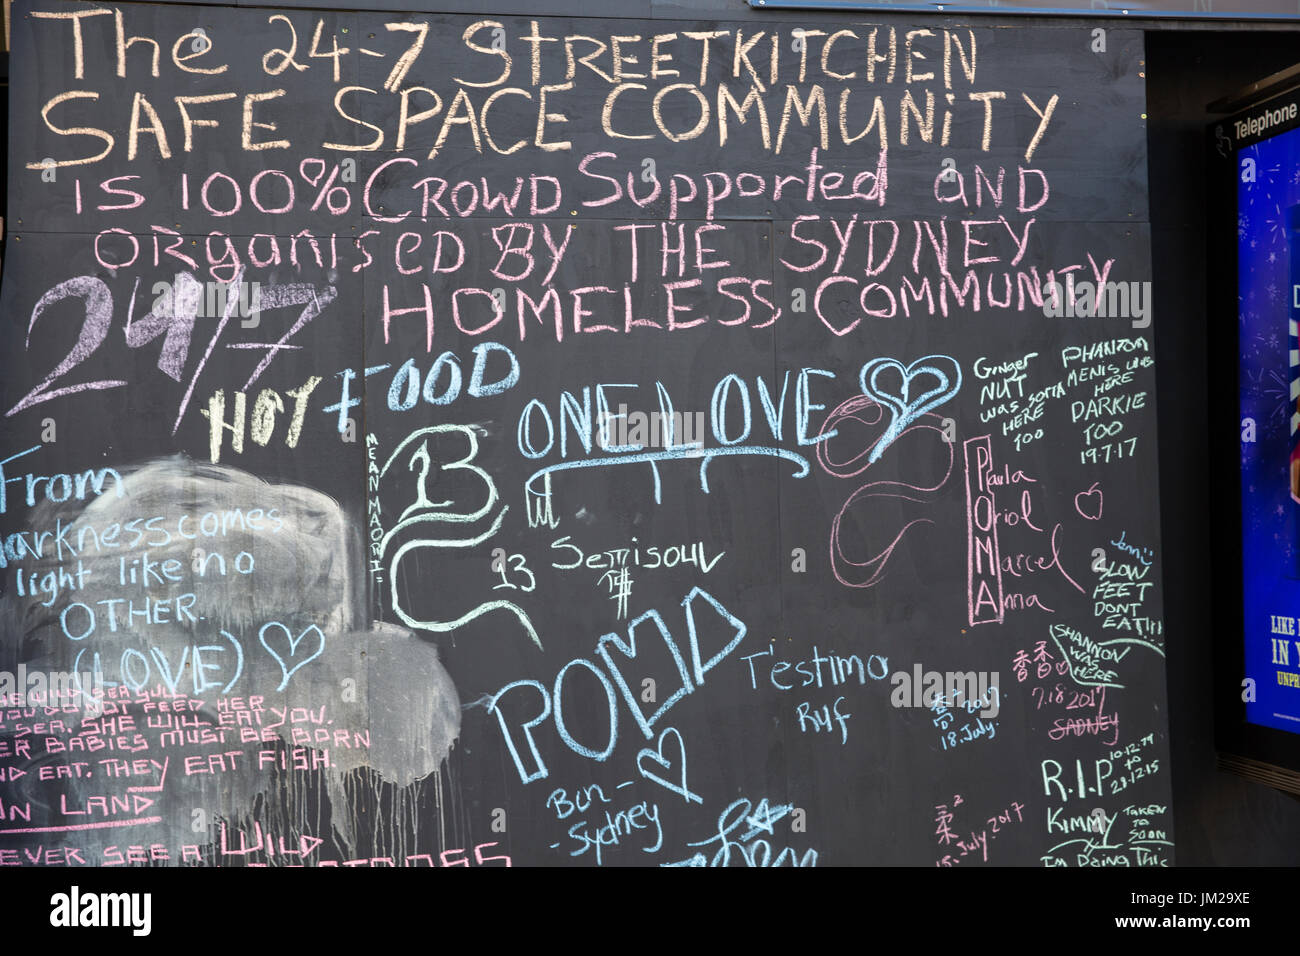 The 24-7 STREETKITCHEN
SAFE SPACE COMMUNITY
IS 100% CROWD Supported AND
ORGANISED BY THE SYDNEY
HOMELESS COMMUNITY
24/7
HOT FOOD
ONE LOVE
GINGER
NUT
WAS SORTA
HERE
TOO
PHANTOM
MENIS WAS
HERE
DARKIE
TOO
19.7.17
MEAN MAORI
13
13
Semisoul
From
darkness comes
light like no
OTHER.
(LOVE)
POMA
Paula
Oriol
Marcel
Anna
Jenni
SLOW
FEET
DONT
EAT!!!
SHANNON
WAS
HERE
POMD
T'estimo
Ruf
Bon-
-Sydney
2017
18.July.
7.18 2017
SADNEY
THE WILD SEA GULL
YOU DO NOT FEED HER
SEA. SHE WILL EAT YOU.
HER BABIES MUST BE BORN
AND EAT. THEY EAT FISH.
ON LAND
NEVER SEE A WILD
R.I.P
10-12-79
to
28.12.15
KIMMY TAKEN
TO
SOON
I'm DOING THIS
July 2017
Telephone
LIKE
IN
UNPR
alamy
Image ID: JM29XE
www.alamy.com